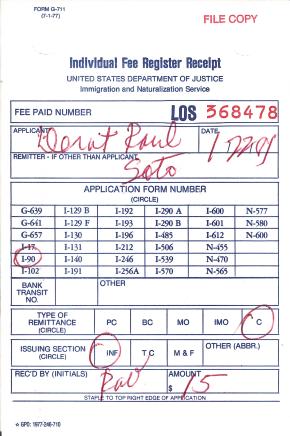 FORM G-711
(7-1-77)
FILE COPY
Individual Fee Register Receipt
UNITED STATES DEPARTMENT OF JUSTICE
Immigration and Naturalization Service
FEE PAID NUMBER LOS 368478
APPLICANT Paul DATE
REMITTER - IF OTHER THAN APPLICANT
Soto
APPLICATION FORM NUMBER
(CIRCLE)
G-639 I-129 B I-192 I-290 A I-600 N-577
G-641 I-129 F I-193 I-290 B I-601 N-580
G-657 I-130 I-196 I-485 I-612 N-600
I-17 I-131 I-212 I-506 N-455
I-90 I-140 I-246 I-539 N-470
I-102 I-191 I-256A I-570 N-565
BANK TRANSIT NO. OTHER
TYPE OF REMITTANCE (CIRCLE) PC BC MO IMO C
ISSUING SECTION (CIRCLE) INF T C M & F OTHER (ABBR.)
REC'D BY (INITIALS) AMOUNT
$ 15
STAPLE TO TOP RIGHT EDGE OF APPLICATION
☆ GPO: 1977-246-710